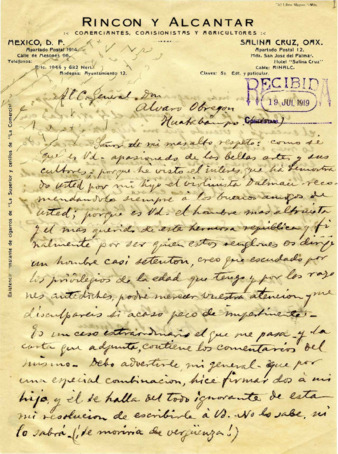 RINCON Y ALCANTAR
COMERCIANTES, COMISIONISTAS Y AGRICULTORES
MEXICO, D. F.
Apartado Postal 1914.
Calle de Mesones 96.
Teléfonos:
Eric. 1945 y 683 Neri.
Bodegas: Ayuntamiento 12.
SALINA CRUZ, OAX.
Apartado Postal 12.
Hotel "Salina Cruz"
Cable: RINALC.
Claves: 5a. Ed. y particular.
RECIBIDA
19 JUL 1919
Al C. General Dn
Alvaro Obregon
Huatabampo
Señor de mi mas alto respeto: como se
que es Vd. apasionado de las bellas artes, y sus
cultores; porque he visto el interes que ha demostra
do usted por mi hijo el violinista Dalmau reco-
mendandolo siempre á los buenos amigos de
usted; porque es Vd. el hombre mas altruista
y el mas querido de esta hermosa republica y fi
nalmente por ser quien estos renglones os dirige
un hombre casi setenton, creo que escudado por
los privilegios de la edad que tengo y por las razo
nes antedichas, podre merecer vuestra atencion y me
disculpareis si acaso peco de impertinente.
Es un caso extraordinario el que me pasa y la
carta que adjunto, contiene los comentarios del
mismo. Debo advertirle mi general que por
una especial combinacion, hice firmar dos á mi
hijo, y el se halla del todo ignorante de esta
mi resolucion de escribirle á Vd. No lo sabe, ni
lo sabrá (¡se moriria de vergüenza!)